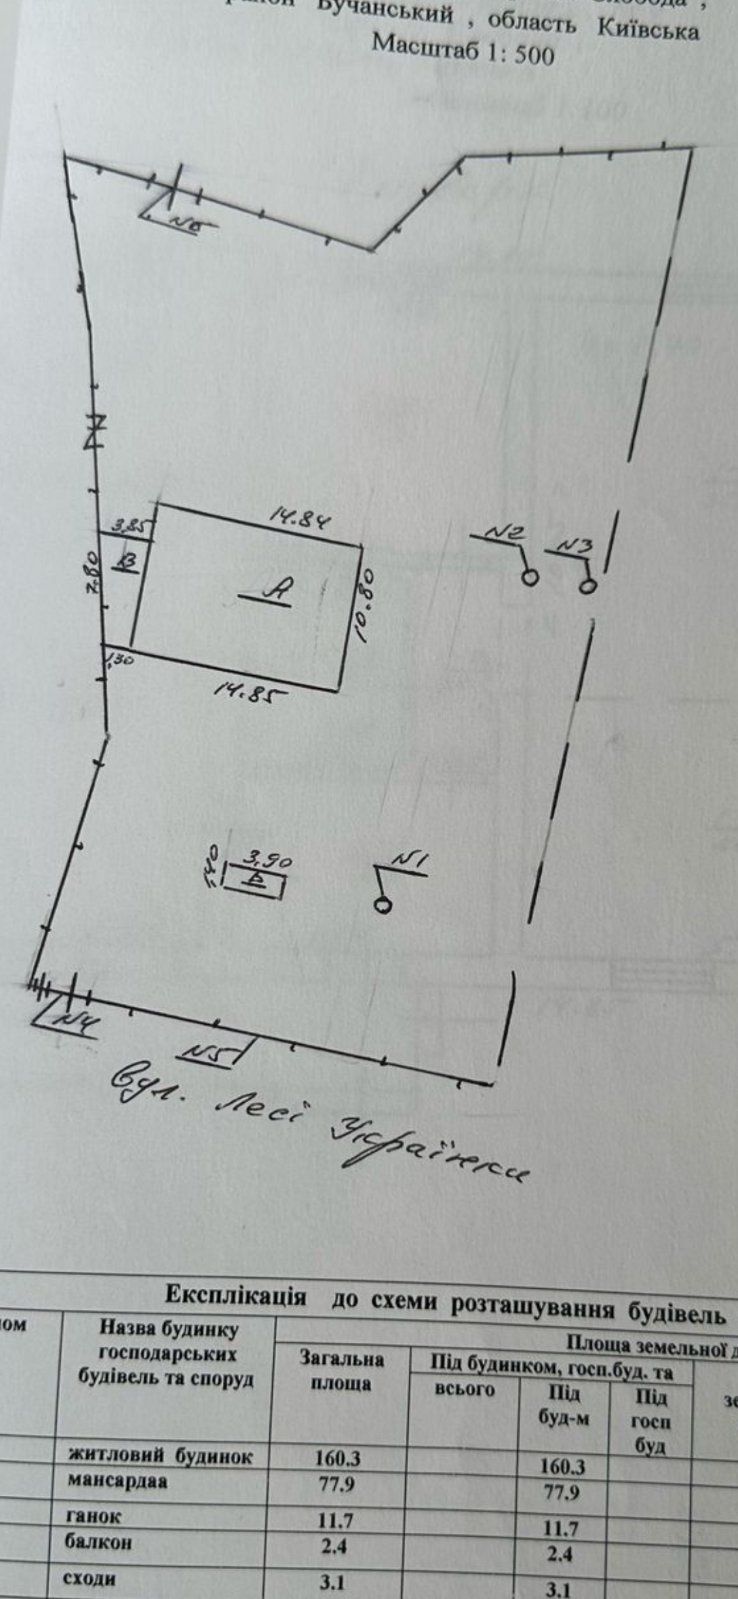 Слобода ,
район Бучанський , область Київська
Масштаб 1: 500
N6
14.84
3,85
В
А
7.80
10.80
1,30
14.85
N2
N3
3,90
1,40
Б
N1
N4
N5
вул. Лесі Українки
Експлікація до схеми розташування будівель
Назва будинку господарських будівель та споруд
Площа земельної д
Загальна площа
Під будинком, госп.буд. та
всього
Під буд-м
Під госп буд
житловий будинок 160.3 160.3
мансардаа 77.9 77.9
ганок 11.7 11.7
балкон 2.4 2.4
сходи 3.1 3.1